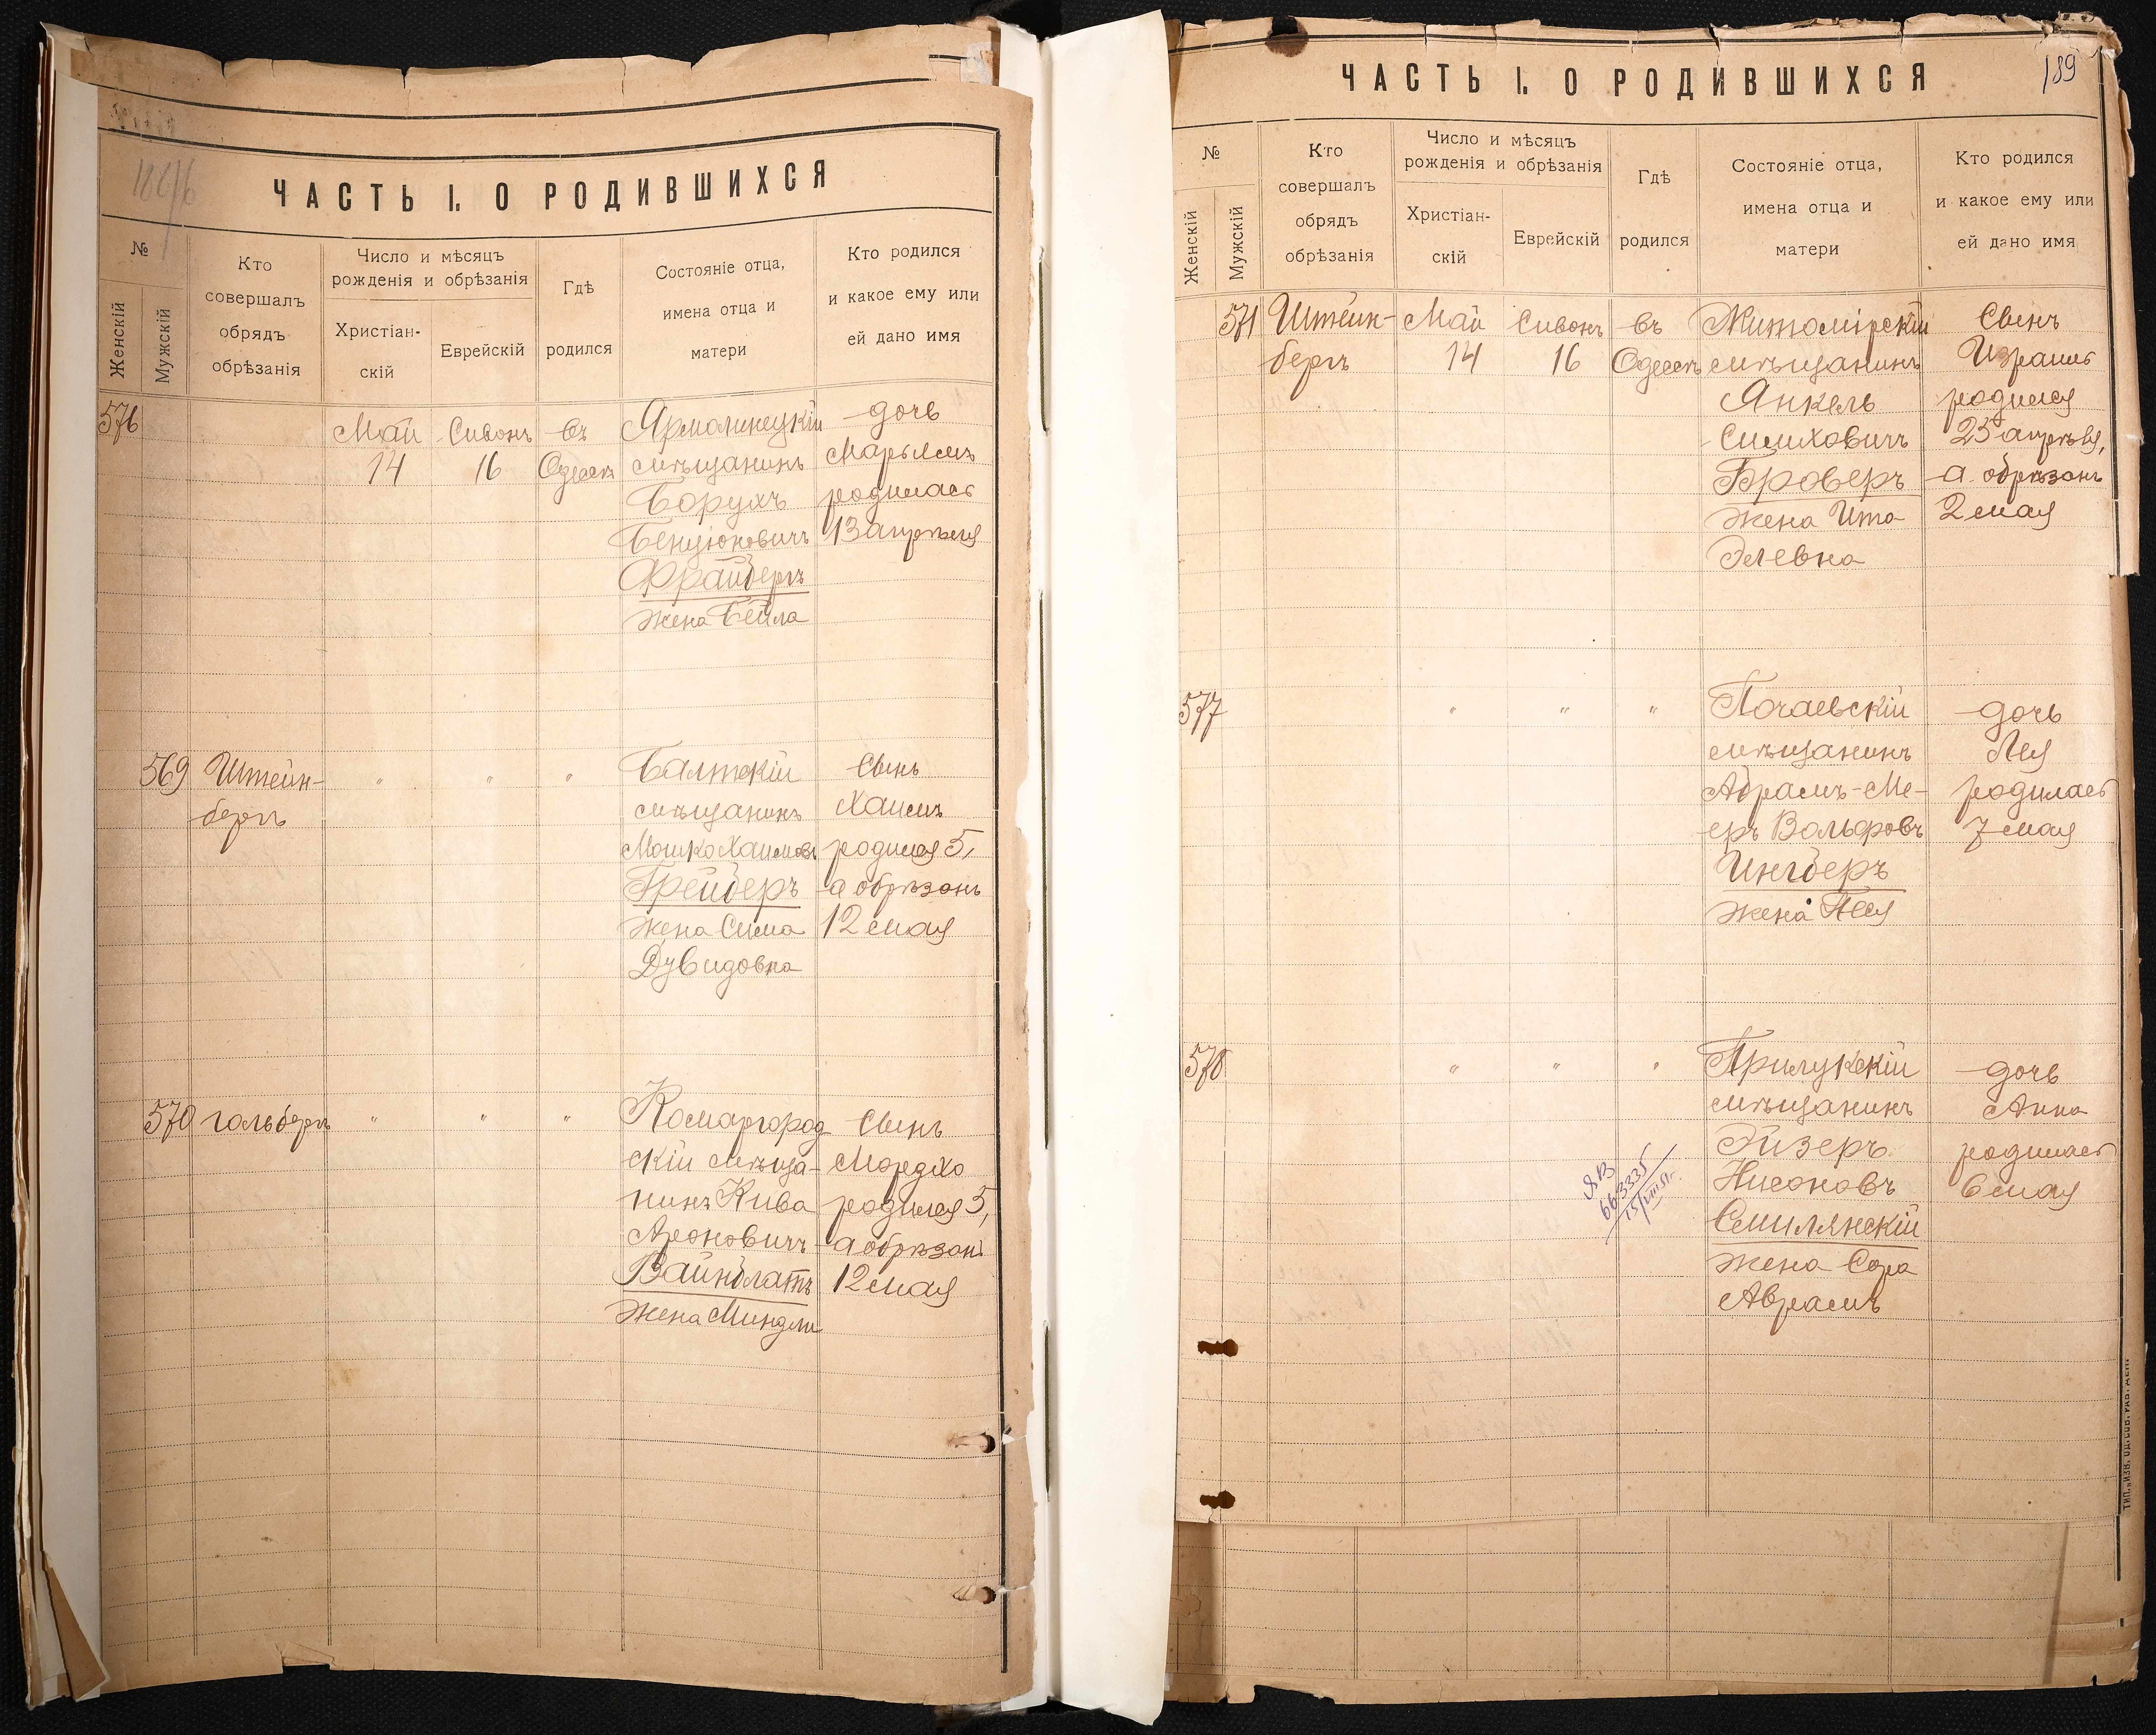 ЧАСТЬ I. О РОДИВШИХСЯ
№
Женскій
Мужскій
Кто
совершалъ
обрядъ
обрѣзанія
Число и мѣсяцъ
рожденія и обрѣзанія
Христіан-
скій
Еврейскій
Гдѣ
родился
Состояніе отца,
имена отца и
матери
Кто родился
и какое ему или
ей дано имя
576
Май
14
Сивонъ
16
въ
Одессѣ
Ярмолинецкій
мѣщанинъ
Борухъ
Бенціоновичъ
Фрайбергъ
жена Бейла
дочь
Марьямъ
родилась
13 апрѣля
569
Штейн-
бергъ
"
"
"
Балтскій
мѣщанинъ
Мошко Хаимовъ
Грейберъ
жена Сима
Дувидовна
Сынъ
Хаимъ
родился 5,
а обрѣзанъ
12 мая
570
гольбергъ
"
"
"
Комаргород
скій мѣща-
нинъ Кива
Ароновичъ
Вайнблатъ
жена Миндли
Сынъ
Мордхо
родился 5,
а обрѣзанъ
12 мая
ЧАСТЬ I. О РОДИВШИХСЯ
189
№
Женскій
Мужскій
Кто
совершалъ
обрядъ
обрѣзанія
Число и мѣсяцъ
рожденія и обрѣзанія
Христіан-
скій
Еврейскій
Гдѣ
родился
Состояніе отца,
имена отца и
матери
Кто родился
и какое ему или
ей дано имя
571
Штейн-
бергъ
Май
14
Сивонъ
16
въ
Одессѣ
Житомірскій
мѣщанинъ
Янкель
Симховичъ
Броверъ
жена Ита
Элевна
Сынъ
Израиль
родился
25 апрѣля,
а обрѣзанъ
2 мая
577
"
"
"
Почаевскій
мѣщанинъ
Абрамъ-Ме-
еръ Вольфовъ
Ингберъ
жена Песя
дочь
Лея
родилась
7 мая
578
"
"
"
Прилукскій
мѣщанинъ
Эйзеръ
Нисоновъ
Смилянскій
жена Сора
Аврамъ
дочь
Анна
родилась
6 мая